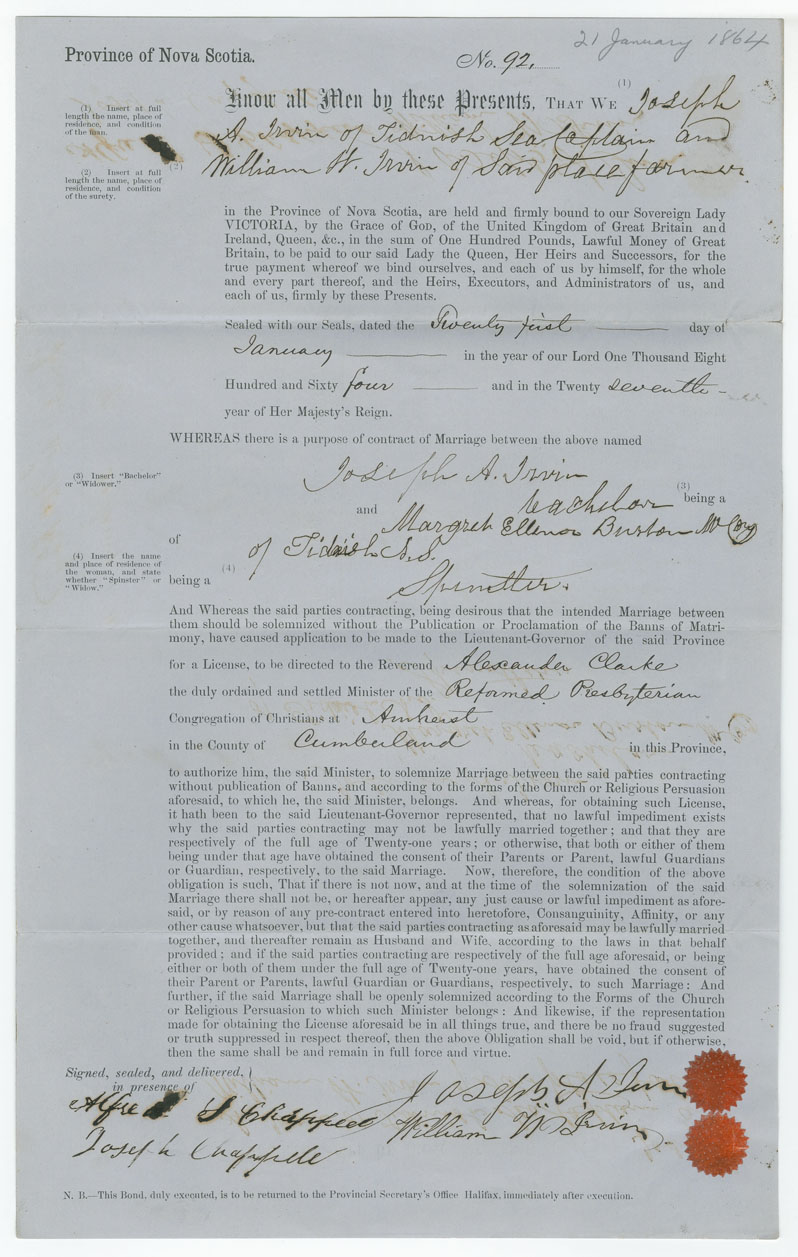 21 January 1864
Province of Nova Scotia.
No. 92.
Know all Men by these Presents, THAT WE (1) Joseph
A. Irvin of Tidnish Sea Captain and
(2) William W. Irvin of Said place farmer.
(1) Insert at full
length the name, place of
residence, and condition
of the man.
(2) Insert at full
length the name, place of
residence, and condition
of the surety.
in the Province of Nova Scotia, are held and firmly bound to our Sovereign Lady
VICTORIA, by the Grace of GOD, of the United Kingdom of Great Britain and
Ireland, Queen, &c., in the sum of One Hundred Pounds, Lawful Money of Great
Britain, to be paid to our said Lady the Queen, Her Heirs and Successors, for the
true payment whereof we bind ourselves, and each of us by himself, for the whole
and every part thereof, and the Heirs, Executors, and Administrators of us, and
each of us, firmly by these Presents.
Sealed with our Seals, dated the Twenty first day of
January in the year of our Lord One Thousand Eight
Hundred and Sixty four and in the Twenty seventh
year of Her Majesty's Reign.
WHEREAS there is a purpose of contract of Marriage between the above named
Joseph A. Irvin
(3) Insert "Bachelor"
or "Widower."
(3) being a
bachelor
and
Margret Ellenor Burton McCoy
of
of Tidnish N.S.
(4) Insert the name
and place of residence of
the woman, and state
whether "Spinster" or
"Widow."
being a (4)
Spinster.
And Whereas the said parties contracting, being desirous that the intended Marriage between
them should be solemnized without the Publication or Proclamation of the Banns of Matri-
mony, have caused application to be made to the Lieutenant-Governor of the said Province
for a License, to be directed to the Reverend Alexander Clarke
the duly ordained and settled Minister of the Reformed Presbyterian
Congregation of Christians at Amherst
in the County of Cumberland in this Province,
to authorize him, the said Minister, to solemnize Marriage between the said parties contracting
without publication of Banns, and according to the forms of the Church or Religious Persuasion
aforesaid, to which he, the said Minister, belongs. And whereas, for obtaining such License,
it hath been to the said Lieutenant-Governor represented, that no lawful impediment exists
why the said parties contracting may not be lawfully married together; and that they are
respectively of the full age of Twenty-one years; or otherwise, that both or either of them
being under that age have obtained the consent of their Parents or Parent, lawful Guardians
or Guardian, respectively, to the said Marriage. Now, therefore, the condition of the above
obligation is such, That if there is not now, and at the time of the solemnization of the said
Marriage there shall not be, or hereafter appear, any just cause or lawful impediment as afore-
said, or by reason of any pre-contract entered into heretofore, Consanguinity, Affinity, or any
other cause whatsoever, but that the said parties contracting as aforesaid may be lawfully married
together, and thereafter remain as Husband and Wife, according to the laws in that behalf
provided; and if the said parties contracting are respectively of the full age aforesaid, or being
either or both of them under the full age of Twenty-one years, have obtained the consent of
their Parent or Parents, lawful Guardian or Guardians, respectively, to such Marriage: And
further, if the said Marriage shall be openly solemnized according to the Forms of the Church
or Religious Persuasion to which such Minister belongs: And likewise, if the representation
made for obtaining the License aforesaid be in all things true, and there be no fraud suggested
or truth suppressed in respect thereof, then the above Obligation shall be void, but if otherwise,
then the same shall be and remain in full force and virtue.
Signed, sealed, and delivered,
in presence of
Joseph A Irvin
S Chappell
William W Irvin
Joseph Chappele
N. B.—This Bond, duly executed, is to be returned to the Provincial Secretary's Office Halifax, immediately after execution.